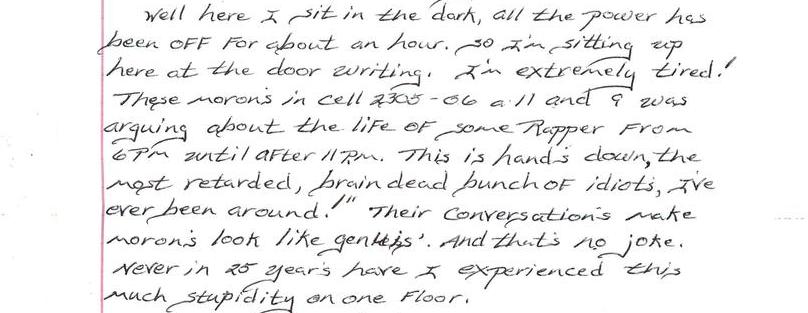 Well here I sit in the dark, all the power has
been OFF For about an hour. so I'm sitting up
here at the door writing. I'm extremely tired!'
These moron's in cell 2305-06 a 11 and 9 was
arguing about the life OF some Rapper From
6PM until aFter 11PM. This is hand's down, the
most retarded, brain dead bunch OF idiots, I've
ever been around!'" Their Conversation's make
moron's look like genius'. And that's no joke.
Never in 25 year's have I experienced this
much stupidity on one Floor.